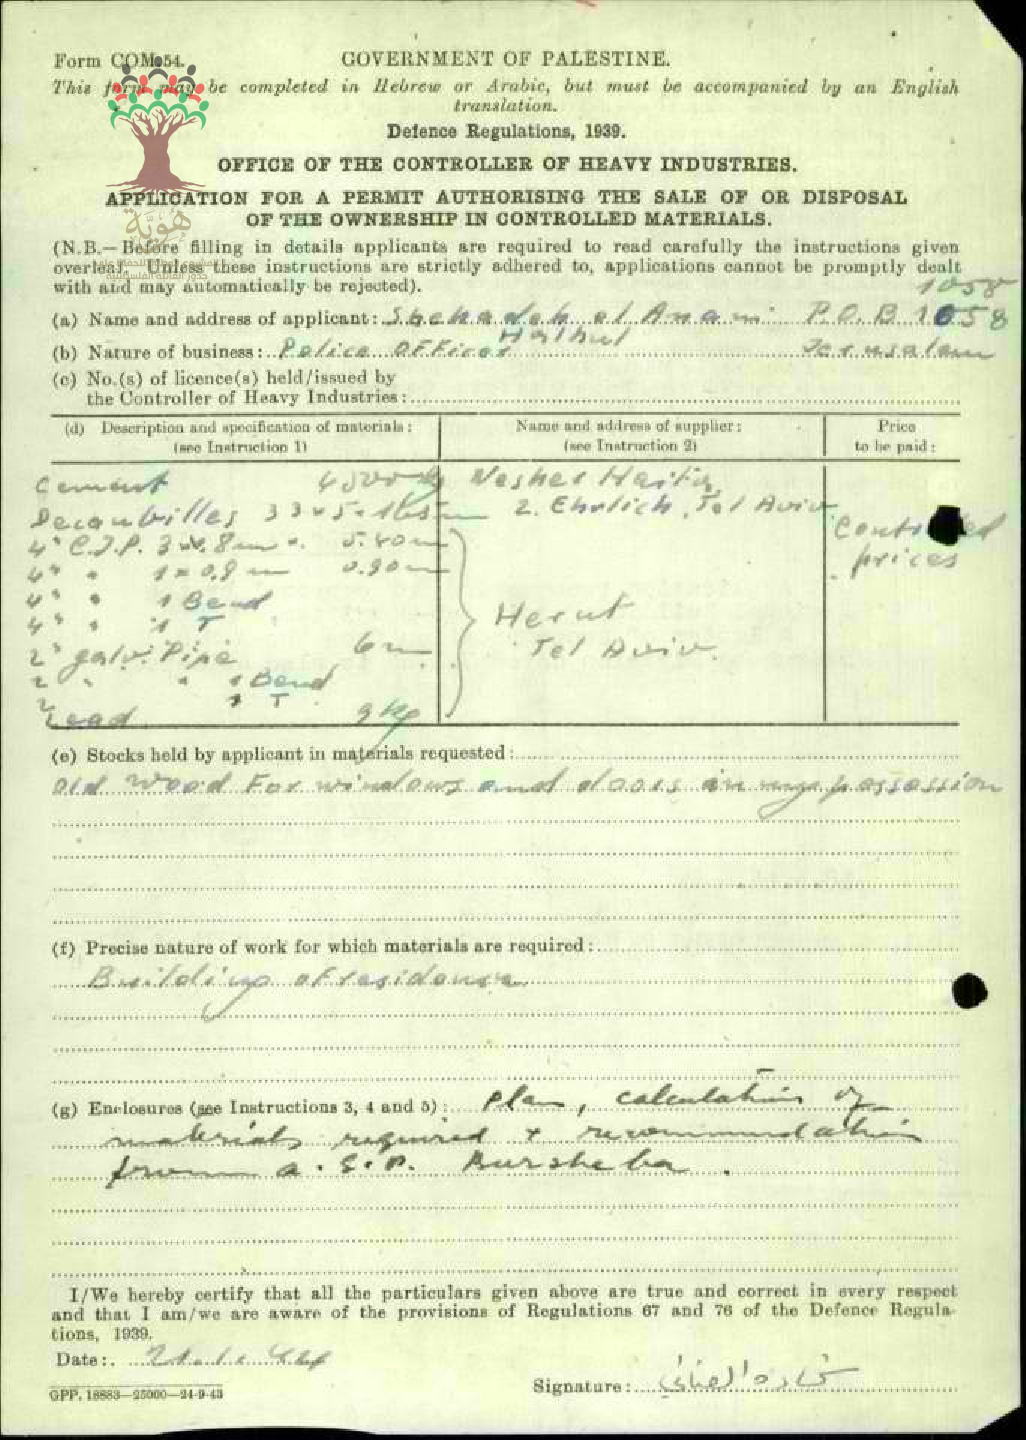 Form COM. 54.
GOVERNMENT OF PALESTINE.
This form may be completed in Hebrew or Arabic, but must be accompanied by an English
translation.
Defence Regulations, 1939.
OFFICE OF THE CONTROLLER OF HEAVY INDUSTRIES.
APPLICATION FOR A PERMIT AUTHORISING THE SALE OF OR DISPOSAL
OF THE OWNERSHIP IN CONTROLLED MATERIALS.
هُويَّة
(N.B.— Before filling in details applicants are required to read carefully the instructions given
overleaf. Unless these instructions are strictly adhered to, applications cannot be promptly dealt
with and may automatically be rejected).
1058
(a) Name and address of applicant: Shehadeh el Anani P.O.B 1058
Halhul
(b) Nature of business: Police Officer Jerusalem
(c) No.(s) of licence(s) held/issued by
the Controller of Heavy Industries:
(d) Description and specification of materials: (see Instruction 1)
Name and address of supplier: (see Instruction 2)
Price to be paid:
Cement 4500 kg Nesher Haifa
Decauvilles 33 x 5 = 165 m 2. Ehrlich, Tel Aviv
Controlled prices
4" C.I.P. 3 x 1.8 m = 5.40 m
4" " 1 x 0.9 m 0.90 m
4" " 1 Bend
4" " 1 T
Herut
Tel Aviv.
2" galv. Pipe 6 m
2" " 1 Bend
2" 1 T
Lead 9 kg
(e) Stocks held by applicant in materials requested:
Old wood For windows and doors in my possession
(f) Precise nature of work for which materials are required:
Building of residence
(g) Enclosures (see Instructions 3, 4 and 5): Plan, calculation of
materials required + recommendation
from A.S.P. Bursheba.
I/We hereby certify that all the particulars given above are true and correct in every respect
and that I am/we are aware of the provisions of Regulations 67 and 76 of the Defence Regula-
tions, 1939.
Date: 21.1.44
GPP. 18883—25000—24-9-43
Signature: شحاده العناني